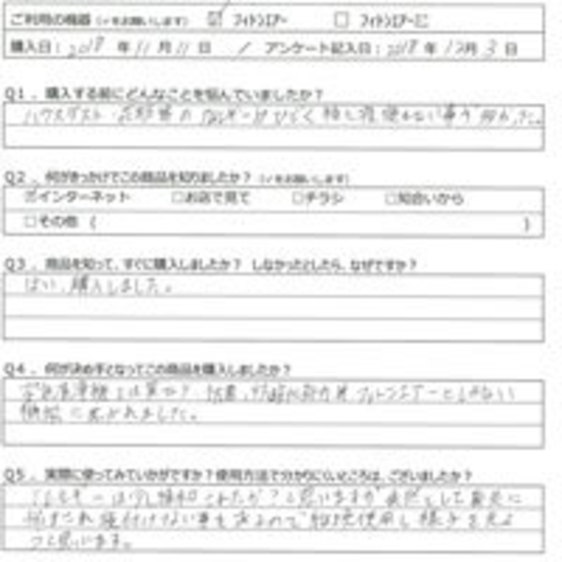 ご利用の機器（✓をお願いします） ☑ フィトンエアー □ フィトンエアーミニ
購入日：2018 年 11 月 11 日 / アンケート記入日：2018 年 12月 3 日
Q1．購入する前にどんなことを悩んでいましたか？
ハウスダスト・花粉等のアレルギーがひどく
Q2．何がきっかけでこの商品を知りましたか？（✓をお願いします）
☑インターネット □お店で見て □チラシ □知合いから
□その他（ ）
Q3．商品を知って、すぐに購入しましたか？ しなかったとしたら、なぜですか？
はい、購入しました。
Q4．何が決め手となってこの商品を購入しましたか？
空気清浄機とは フィトンエアーにしかない
機能に惹かれました。
Q5．実際に使ってみていかがですか？使用方法で分かりにくいところは、ございましたか？
アレルギーは少し緩和されたかな？と思いますが 依然として鼻炎に
寝付けない事もあるので 継続使用し様子を見よ
うと思います。